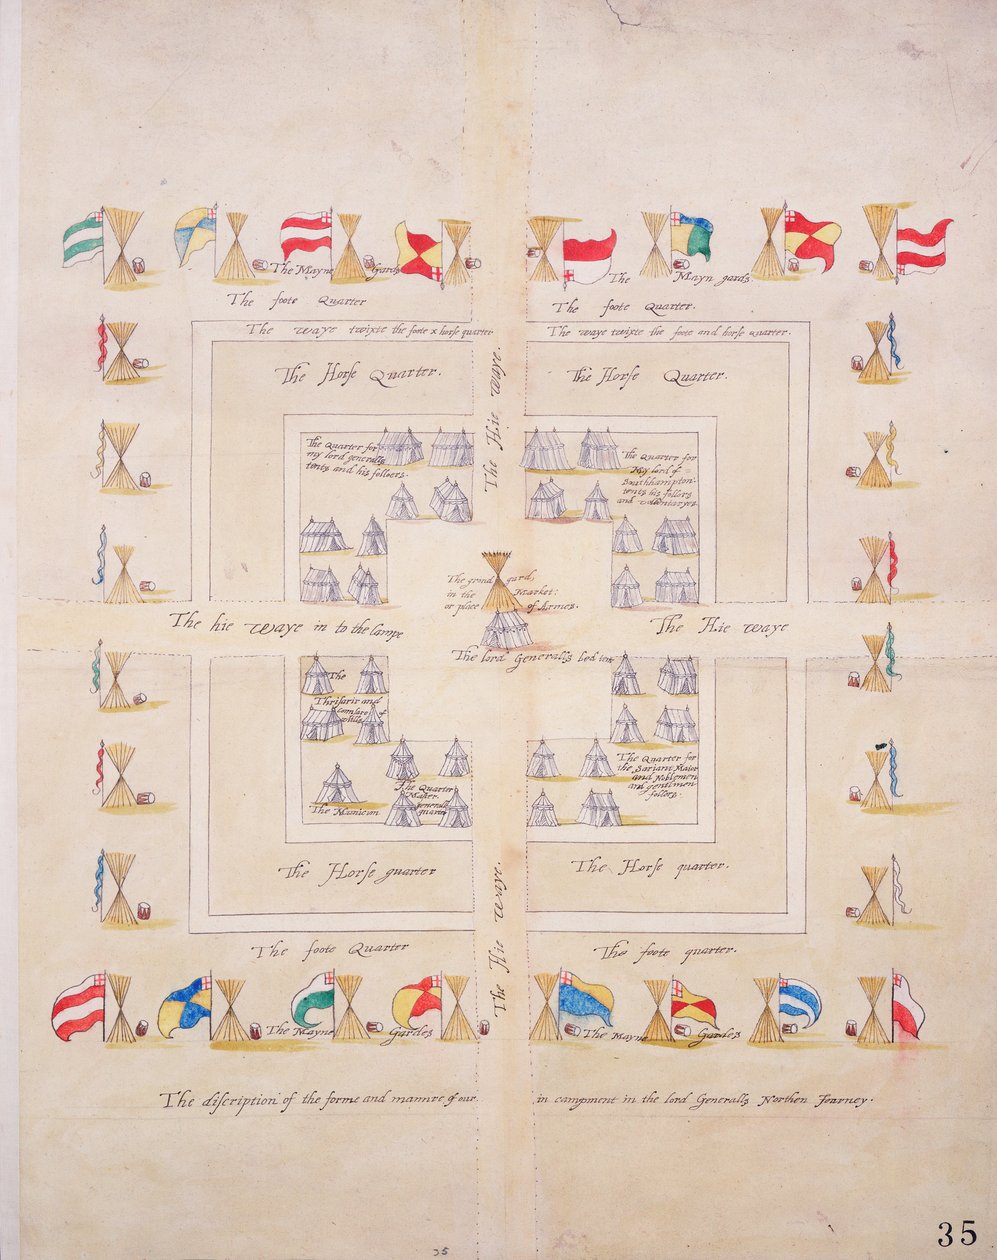 The Mayne Gards
The Mayn gards
The foote Quarter
The foote Quarter.
The waye twixte the foote & horse quarter
The waye twixte the foote and horse quarter.
The Horse Quarter.
The Horse Quarter.
The Hie waye.
The Quarter for
my lord generalls
tents and his follers.
The Quarter for
My lord of
Southhampton
tents his follers
and volontaryes
The grand gard,
in the Market:
or place of Armes.
The hie waye in to the campe
The Hie waye
The lord Generalls bed tent
The
Thrisarir and
of
The Quarter
Master
generals
quarter
The Municon
The Quarter for
the Sariant Maior
and Noblemen
and gentlmen
follers.
The Horse quarter
The Horse quarter.
The Hie waye.
The foote Quarter
The foote quarter.
The Mayne Gardes
The Mayne Gardes
The discription of the forme and mannre of our in campment in the lord Generalls Northen Journey.
35
35